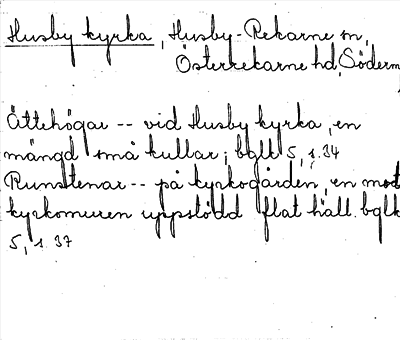 Husby kyrka, Husby-Rekarne sn,
Österrekarne hd, Söderm
Ättehögar -- vid Husby kyrka, en
mängd små kullar; bglk 5, s. 34
Runstenar -- på kyrkogården, en mot
kyrkomuren uppstödd flat häll. bglk
5, s. 37